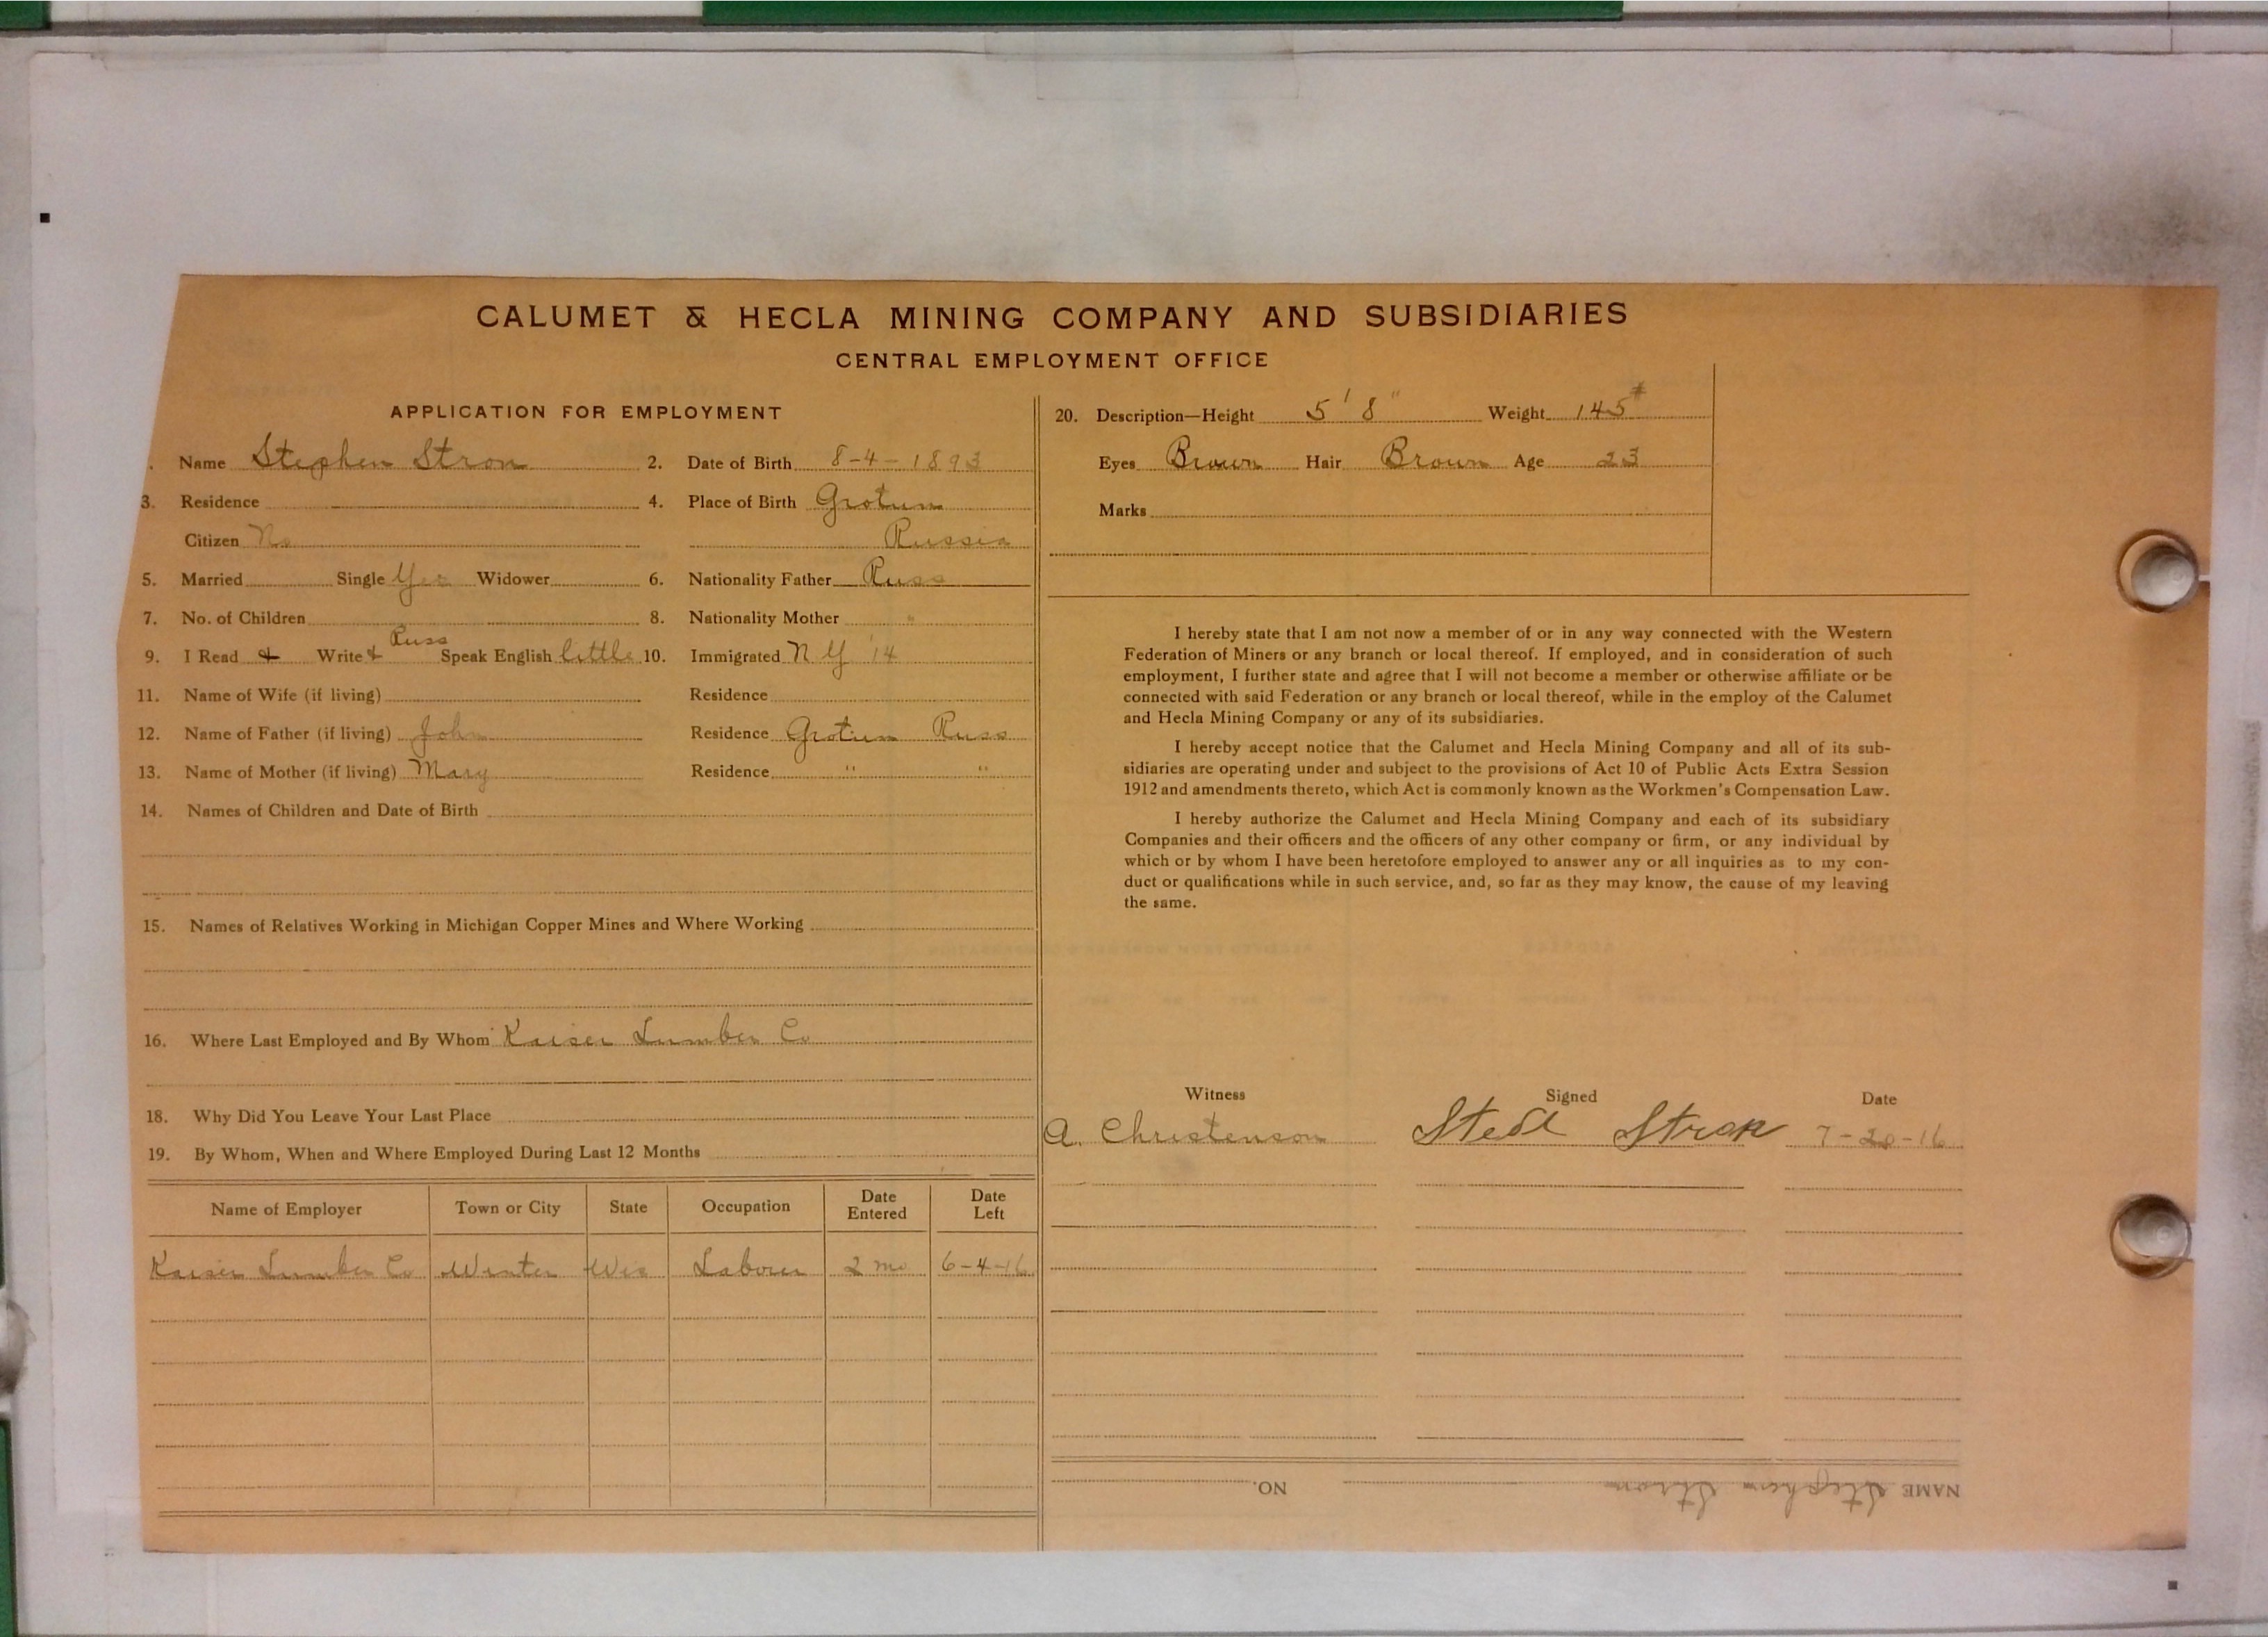 CALUMET & HECLA MINING COMPANY AND SUBSIDIARIES
CENTRAL EMPLOYMENT OFFICE
APPLICATION FOR EMPLOYMENT
. Name Stephen Stron 2. Date of Birth 8-4-1893
3. Residence 4. Place of Birth Grotum
Citizen No Russia
5. Married Single Yes Widower 6. Nationality Father Russ
7. No. of Children 8. Nationality Mother "
Russ
9. I Read & Write & Speak English little 10. Immigrated N Y '14
11. Name of Wife (if living) Residence
12. Name of Father (if living) John Residence Grotum Russ
13. Name of Mother (if living) Mary Residence " "
14. Names of Children and Date of Birth
15. Names of Relatives Working in Michigan Copper Mines and Where Working
16. Where Last Employed and By Whom Kaiser Lumber Co
18. Why Did You Leave Your Last Place
19. By Whom, When and Where Employed During Last 12 Months
Name of Employer Town or City State Occupation Date Entered Date Left
Kaiser Lumber Co Winter Wis Laborer 2 mo 6-4-16
20. Description—Height 5' 8" Weight 145#
Eyes Brown Hair Brown Age 23
Marks
I hereby state that I am not now a member of or in any way connected with the Western
Federation of Miners or any branch or local thereof. If employed, and in consideration of such
employment, I further state and agree that I will not become a member or otherwise affiliate or be
connected with said Federation or any branch or local thereof, while in the employ of the Calumet
and Hecla Mining Company or any of its subsidiaries.
I hereby accept notice that the Calumet and Hecla Mining Company and all of its sub-
sidiaries are operating under and subject to the provisions of Act 10 of Public Acts Extra Session
1912 and amendments thereto, which Act is commonly known as the Workmen's Compensation Law.
I hereby authorize the Calumet and Hecla Mining Company and each of its subsidiary
Companies and their officers and the officers of any other company or firm, or any individual by
which or by whom I have been heretofore employed to answer any or all inquiries as to my con-
duct or qualifications while in such service, and, so far as they may know, the cause of my leaving
the same.
Witness Signed Date
A. Christenson 7-20-16
NAME Stephen Stron NO.